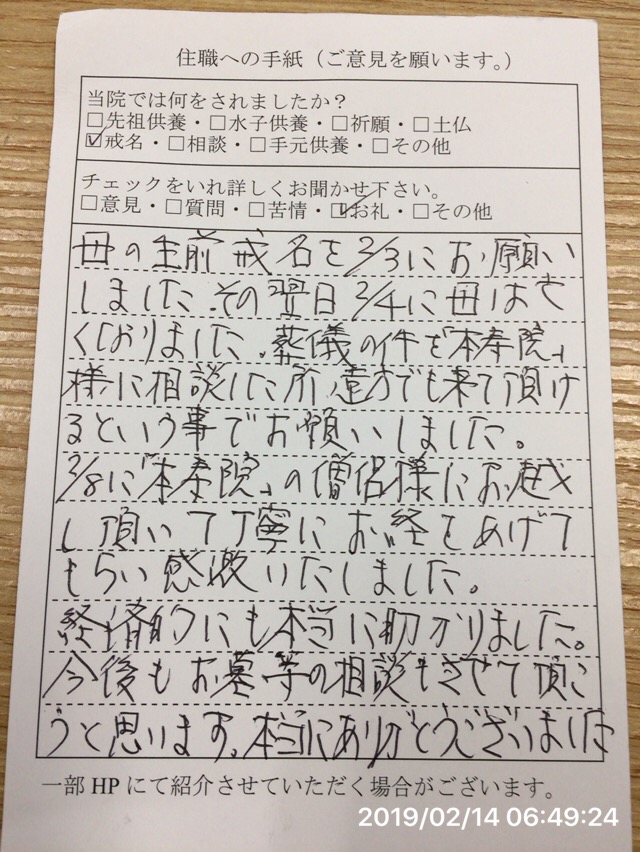 住職への手紙（ご意見を願います。）
当院では何をされましたか？
□先祖供養・□水子供養・□祈願・□土仏
☑戒名・□相談・□手元供養・□その他
チェックをいれ詳しくお聞かせ下さい。
□意見・□質問・□苦情・☑お礼・□その他
母の生前戒名を2/3にお願い
しました。その翌日2/4に母は亡
くなりました。葬儀の件を「本寿院」
様に相談した所、遠方でも来て頂け
るという事でお願いしました。
2/8に「本寿院」の僧侶様にお越
し頂いて丁寧にお経をあげて
もらい感激いたしました。
経済的にも本当に助かりました。
今後もお墓等の相談もさせて頂こ
うと思います。本当にありがとうございました
一部HPにて紹介させていただく場合がございます。
2019/02/14 06:49:24